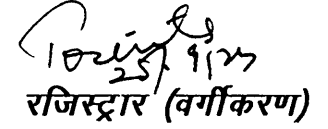 25/9/23
रजिस्ट्रार (वर्गीकरण)